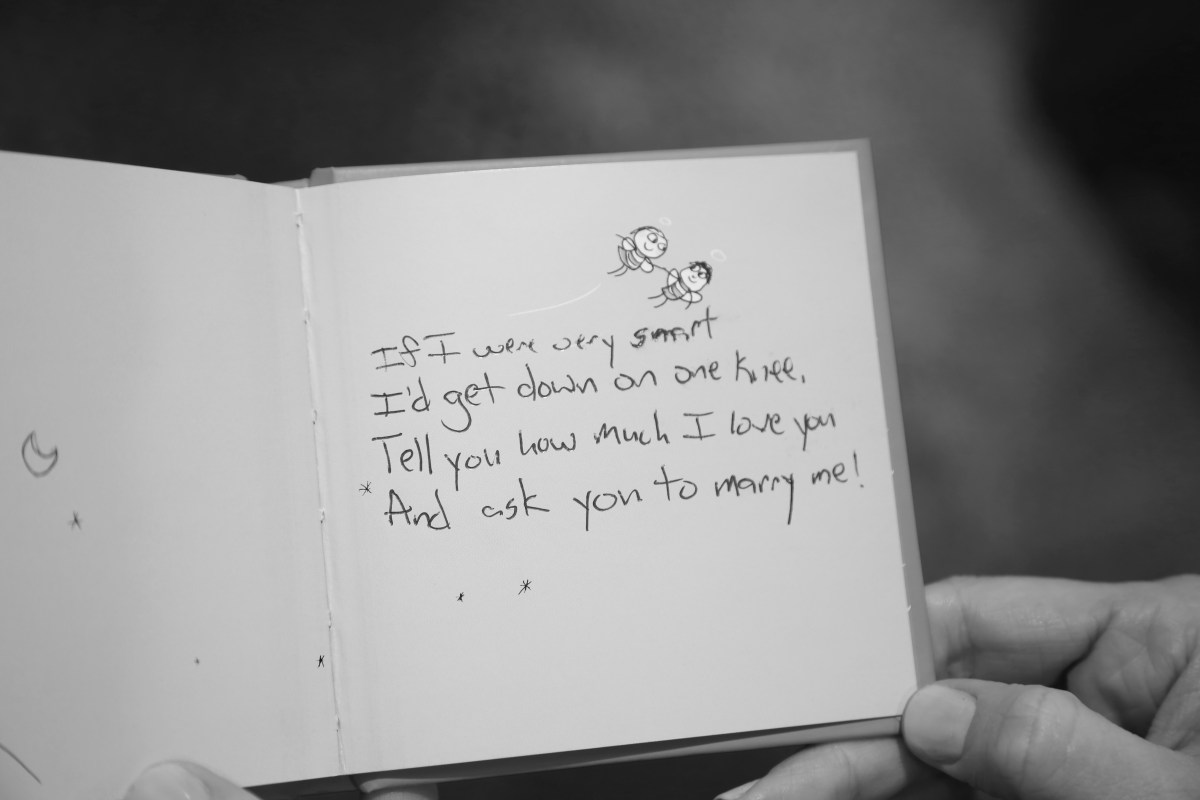 If I were very smart
I'd get down on one knee,
Tell you how much I love you
And ask you to marry me!